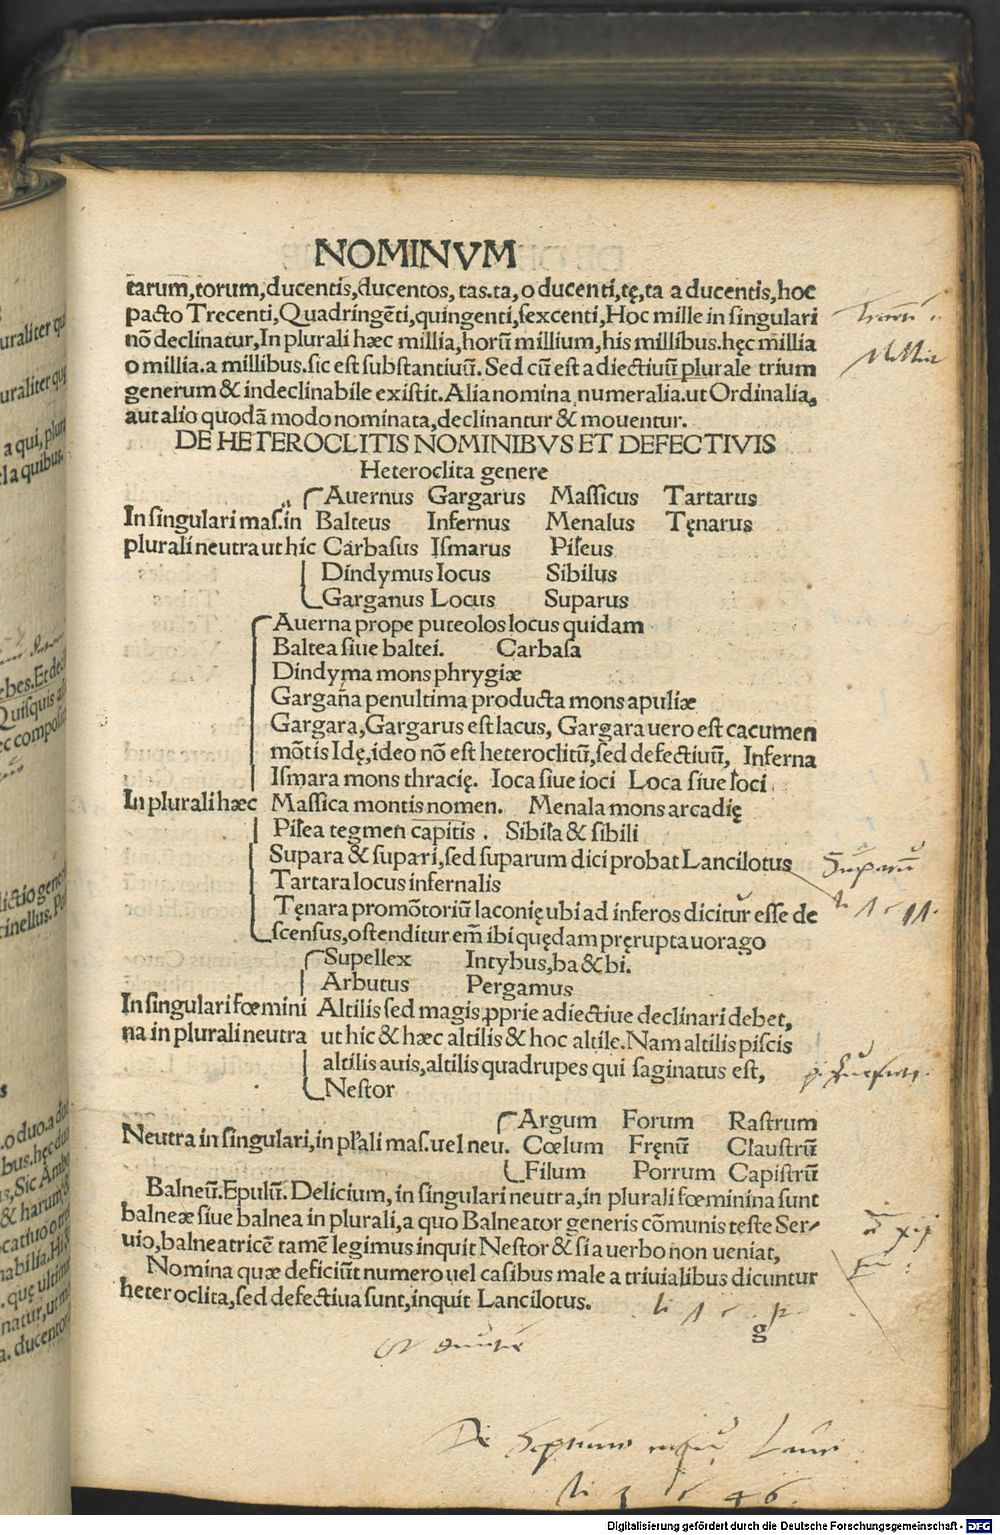 NOMINVM
tarum,torum,ducentis,ducentos, tas.ta, o ducenti,tę,ta a ducentis,hoc
pacto Trecenti,Quadringēti,quingenti,sexcenti,Hoc mille in singulari
nō declinatur,In plurali hæc millia,horū millium,his millibus.hęc millia
o millia.a millibus.sic est substantiuū. Sed cū est adiectiuū plurale trium
generum & indeclinabile existit.Alia nomina numeralia.ut Ordinalia,
aut alio quodā modo nominata,declinantur & mouentur.
DE HETEROCLITIS NOMINIBVS ET DEFECTIVIS
Heteroclita genere
Auernus Gargarus Massicus Tartarus
In singulari mas.in Balteus Infernus Menalus Tęnarus
plurali neutra ut hic Carbasus Ismarus Pileus
Dindymus Iocus Sibilus
Garganus Locus Suparus
Auerna prope puteolos locus quidam
Baltea siue baltei. Carbasa
Dindyma mons phrygiæ
Gargana penultima producta mons apuliæ
Gargara,Gargarus est lacus, Gargara uero est cacumen
mōtis Idę,ideo nō est heteroclitū,sed defectiuū, Inferna
Ismara mons thracię. Ioca siue ioci Loca siue loci
In plurali hæc Massica montis nomen. Menala mons arcadię
Pilea tegmen capitis . Sibila & sibili
Supara & supari,sed suparum dici probat Lancilotus
Tartara locus infernalis
Tęnara promōtoriū laconię ubi ad inferos dicitur esse de
scensus,ostenditur em̄ ibi quędam prerupta uorago
Supellex Intybus,ba & bi.
Arbutus Pergamus
In singulari fœmini Altilis sed magis ꝓprie adiectiue declinari debet,
na in plurali neutra ut hic & hæc altilis & hoc altile.Nam altilis piscis
altilis auis,altilis quadrupes qui saginatus est,
Nestor
Argum Forum Rastrum
Neutra in singulari,in pl̄ali mas.uel neu. Cœlum Fręnū Claustrū
Filum Porrum Capistrū
Balneū.Epulū.Delicium, in singulari neutra,in plurali fœminina sunt
balneæ siue balnea in plurali,a quo Balneator generis cōmunis teste Ser/
uio,balneatricē tamē legimus inquit Nestor & si a uerbo non ueniat,
Nomina quæ deficiūt numero uel casibus male a triuialibus dicuntur
heteroclita,sed defectiua sunt,inquit Lancilotus.
g
Digitalisierung gefördert durch die Deutsche Forschungsgemeinschaft - DFG